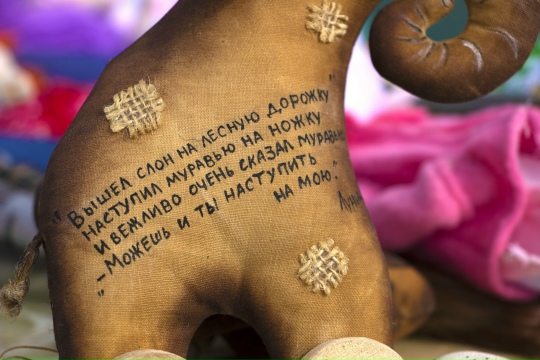 "Вышел слон на лесную дорожку"
наступил муравью на ножку
и вежливо очень сказал муравью
"– Можешь и ты наступить
на мою."